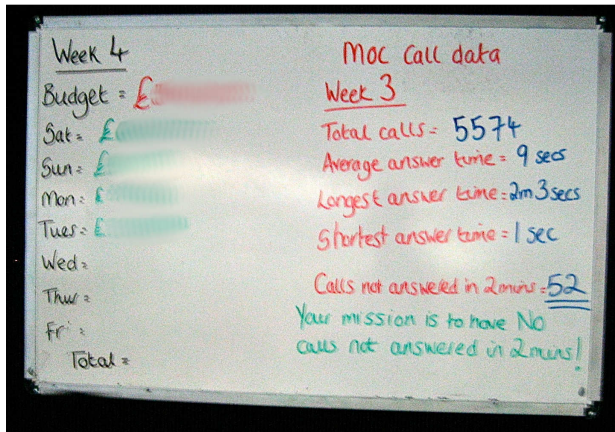 Week 4
Budget = £
Sat = £
Sun = £
Mon = £
Tues = £
Wed =
Thur =
Fri =
Total =
MOC Call data
Week 3
Total calls = 5574
Average answer time = 9 secs
Longest answer time = 2m 3secs
Shortest answer time = 1 sec
Calls not answered in 2 mins = 52
Your mission is to have No
calls not answered in 2 mins!